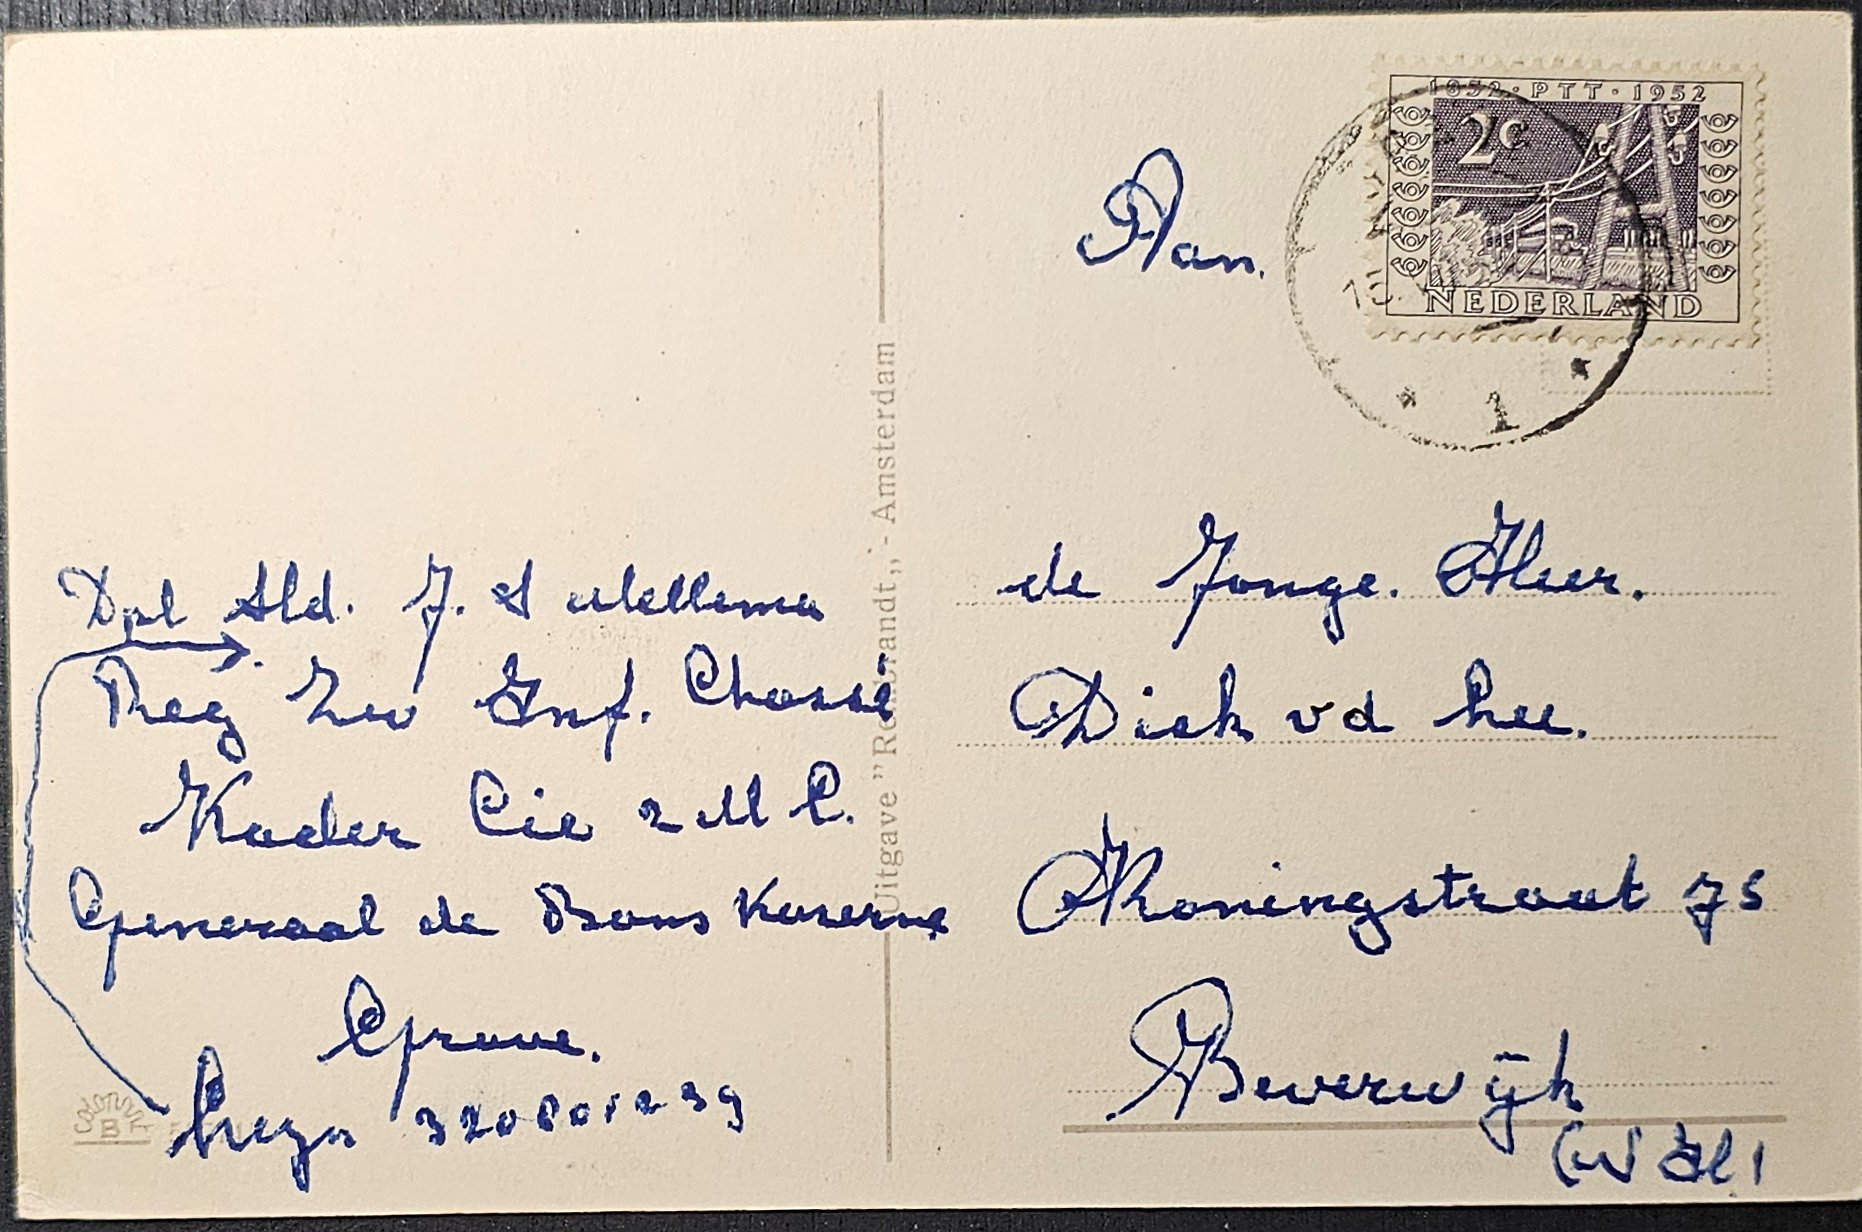 1852 · PTT · 1952
2c
NEDERLAND
15
1
Aan.
de Jonge. Heer.
Dick vd Lee.
Koningstraat 75
Beverwijk
(N H)
Dpl Sld. J.
Reg Zw Inf. Chassé
Kader Cie 2 M C.
Generaal de Bons Kazerne
Grave.
Legn 320801239
Uitgave "Rembrandt„ - Amsterdam